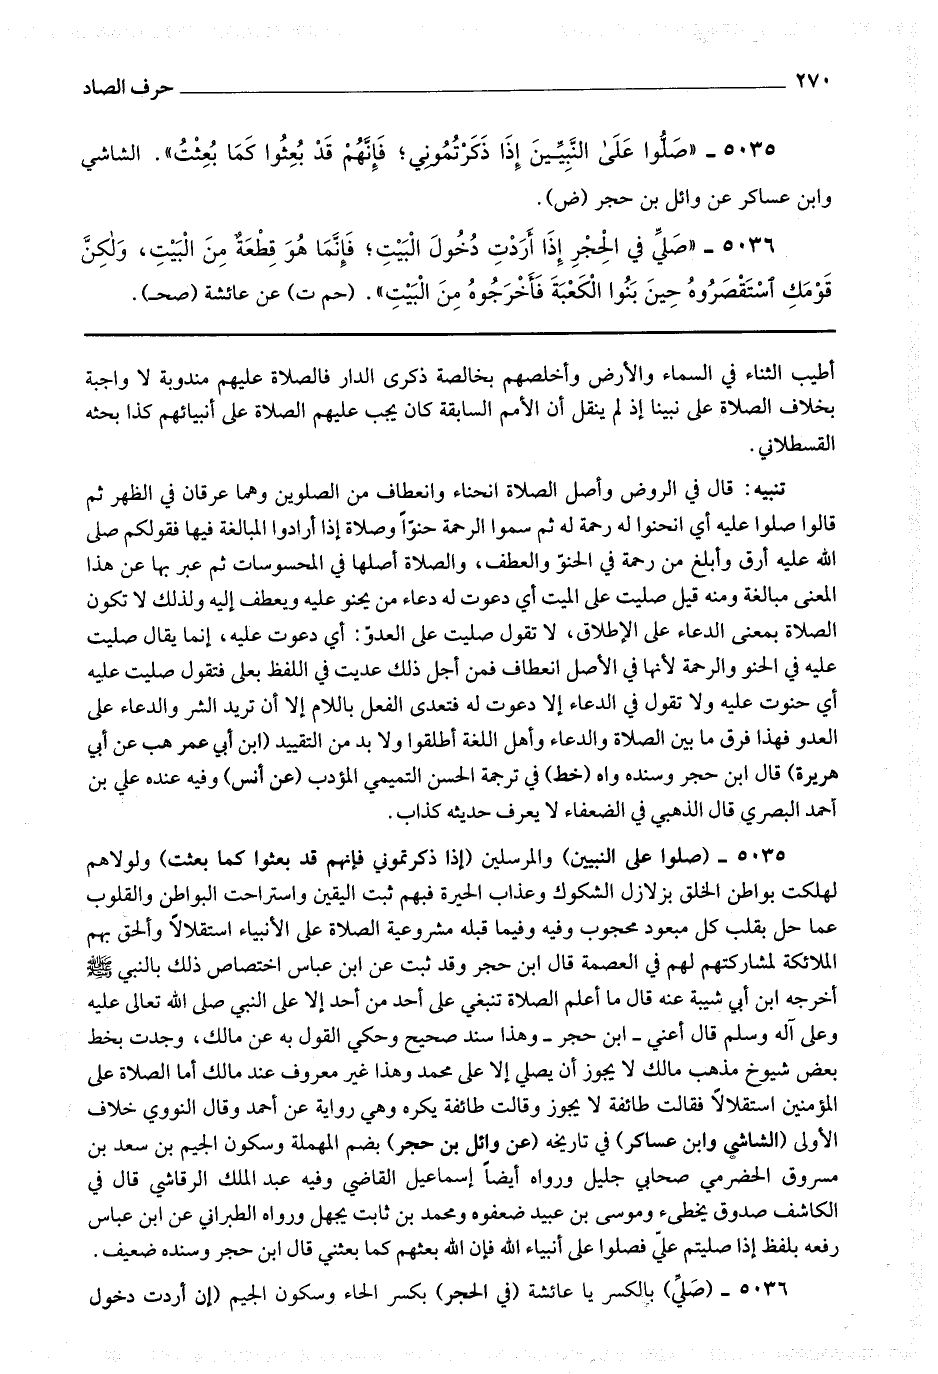 ٢٧٠ ــــــ حرف الصاد
٥٠٣٥ ـ «صَلُّوا عَلَىٰ النَّبِيِّينَ إِذَا ذَكَرْتُمُونِي؛ فَإِنَّهُمْ قَدْ بُعِثُوا كَمَا بُعِثْتُ». الشاشي
وابن عساكر عن وائل بن حجر (ض).
٥٠٣٦ ـ «صَلِّي فِي الْحِجْرِ إِذَا أَرَدْتِ دُخُولَ الْبَيْتِ؛ فَإِنَّمَا هُوَ قِطْعَةٌ مِنَ الْبَيْتِ، وَلٰكِنَّ
قَوْمَكِ ٱسْتَقْصَرُوهُ حِينَ بَنُوا الْكَعْبَةَ فَأَخْرَجُوهُ مِنَ الْبَيْتِ». (حم ت) عن عائشة (صحـ).
أطيب الثناء في السماء والأرض وأخلصهم بخالصة ذكرى الدار فالصلاة عليهم مندوبة لا واجبة
بخلاف الصلاة على نبينا إذ لم ينقل أن الأمم السابقة كان يجب عليهم الصلاة على أنبيائهم كذا بحثه
القسطلاني.
تنبيه: قال في الروض وأصل الصلاة انحناء وانعطاف من الصلوين وهما عرقان في الظهر ثم
قالوا صلوا عليه أي انحنوا له رحمة له ثم سموا الرحمة حنوّاً وصلاة إذا أرادوا المبالغة فيها فقولكم صلى
الله عليه أرق وأبلغ من رحمة في الحنوّ والعطف، والصلاة أصلها في المحسوسات ثم عبر بها عن هذا
المعنى مبالغة ومنه قيل صليت على الميت أي دعوت له دعاء من يحنو عليه ويعطف إليه ولذلك لا تكون
الصلاة بمعنى الدعاء على الإطلاق، لا تقول صليت على العدوّ: أي دعوت عليه، إنما يقال صليت
عليه في الحنو والرحمة لأنها في الأصل انعطاف فمن أجل ذلك عديت في اللفظ بعلى فتقول صليت عليه
أي حنوت عليه ولا تقول في الدعاء إلا دعوت له فتعدى الفعل باللام إلا أن تريد الشر والدعاء على
العدو فهذا فرق ما بين الصلاة والدعاء وأهل اللغة أطلقوا ولا بد من التقييد (ابن أبي عمر هب عن أبي
هريرة) قال ابن حجر وسنده واه (خط) في ترجمة الحسن التميمي المؤدب (عن أنس) وفيه عنده علي بن
أحمد البصري قال الذهبي في الضعفاء لا يعرف حديثه كذاب.
٥٠٣٥ ـ (صلوا على النبيين) والمرسلين (إذا ذكرتموني فإنهم قد بعثوا كما بعثت) ولولاهم
لهلكت بواطن الخلق بزلازل الشكوك وعذاب الحيرة فبهم ثبت اليقين واستراحت البواطن والقلوب
عما حل بقلب كل مبعود محجوب وفيه وفيما قبله مشروعية الصلاة على الأنبياء استقلالاً وألحق بهم
الملائكة لمشاركتهم لهم في العصمة قال ابن حجر وقد ثبت عن ابن عباس اختصاص ذلك بالنبي ﷺ
أخرجه ابن أبي شيبة عنه قال ما أعلم الصلاة تنبغي على أحد من أحد إلا على النبي صلى الله تعالى عليه
وعلى آله وسلم قال أعني ـ ابن حجر ـ وهذا سند صحيح وحكي القول به عن مالك، وجدت بخط
بعض شيوخ مذهب مالك لا يجوز أن يصلي إلا على محمد وهذا غير معروف عند مالك أما الصلاة على
المؤمنين استقلالاً فقالت طائفة لا يجوز وقالت طائفة يكره وهي رواية عن أحمد وقال النووي خلاف
الأولى (الشاشي وابن عساكر) في تاريخه (عن وائل بن حجر) بضم المهملة وسكون الجيم بن سعد بن
مسروق الحضرمي صحابي جليل ورواه أيضاً إسماعيل القاضي وفيه عبد الملك الرقاشي قال في
الكاشف صدوق يخطىء وموسى بن عبيد ضعفوه ومحمد بن ثابت يجهل ورواه الطبراني عن ابن عباس
رفعه بلفظ إذا صليتم عليّ فصلوا على أنبياء الله فإن الله بعثهم كما بعثني قال ابن حجر وسنده ضعيف.
٥٠٣٦ ـ (صَلِّي) بالكسر يا عائشة (في الحجر) بكسر الحاء وسكون الجيم (إن أردت دخول